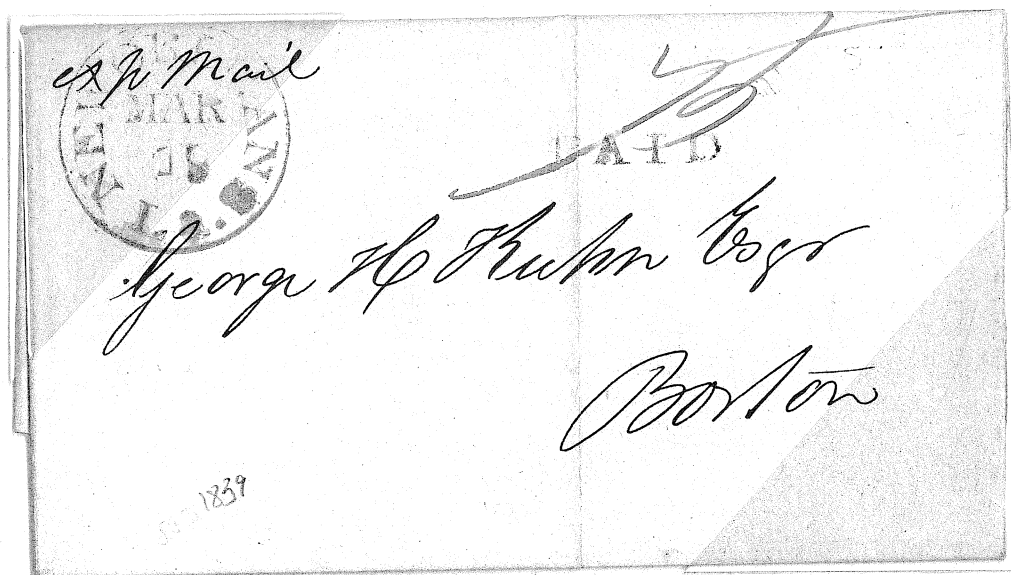 exp Mail
NEW
ANS
LA.
MAR
PAID
George H Kuhn Esqr
Boston
1839